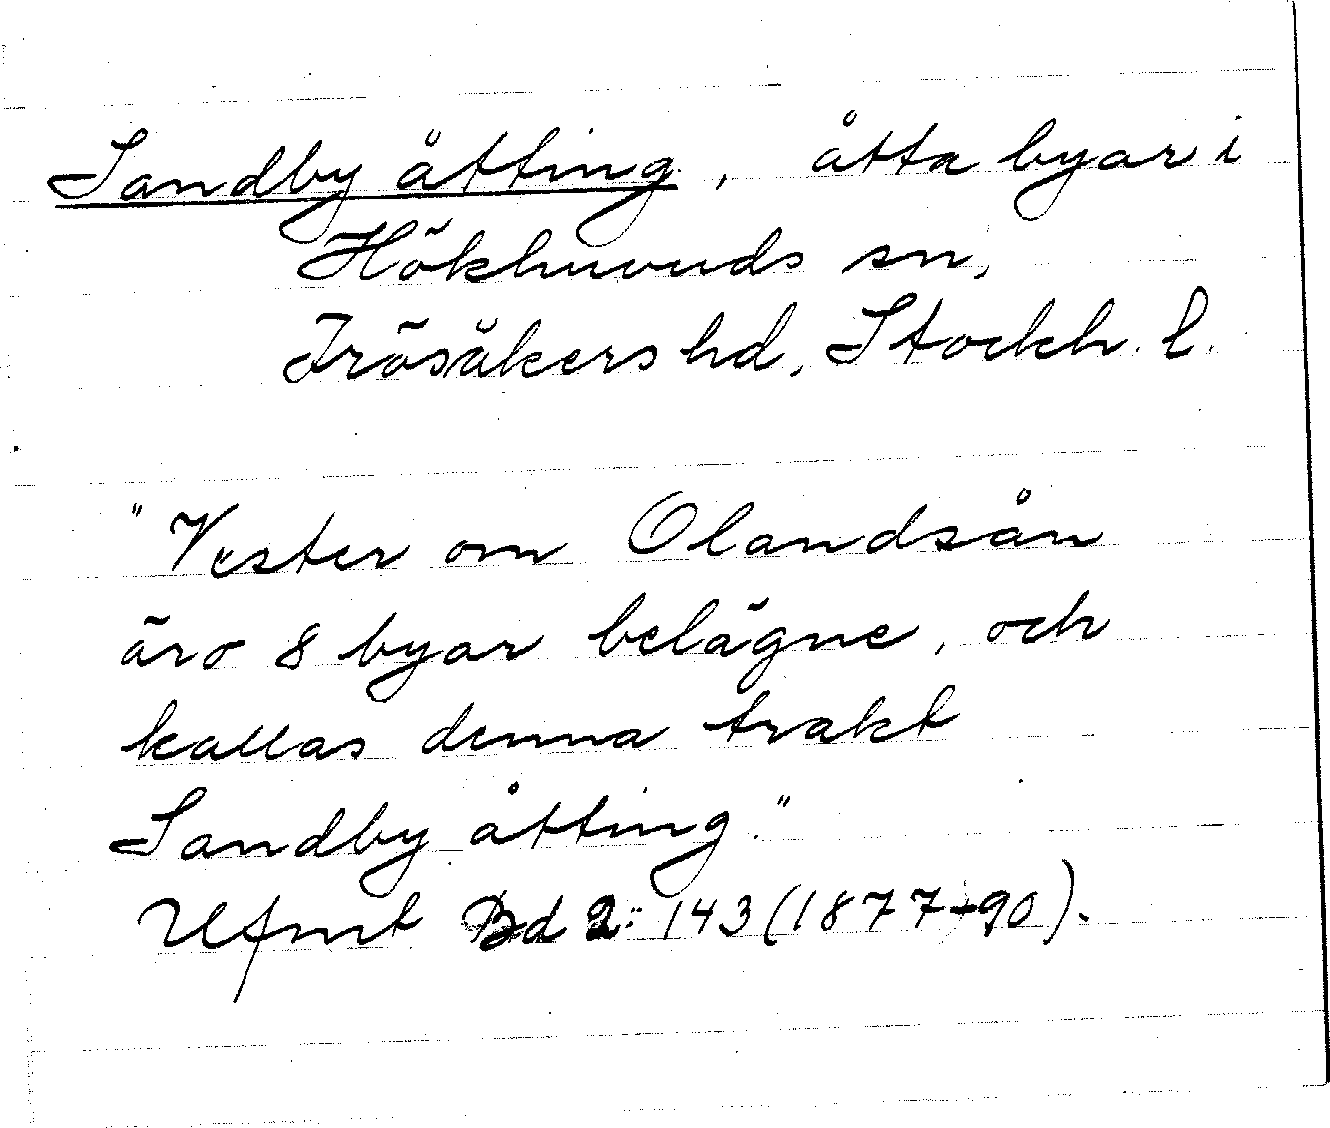 Sandby åtting, åtta byar i
Hökhuvuds sn,
Frösåkers hd, Stockh. l.
"Vester om Olandsån
äro 8 byar belägne, och
kallas denna trakt
Sandby åtting."
Ufmt Bd 2: 143 (1877-90).